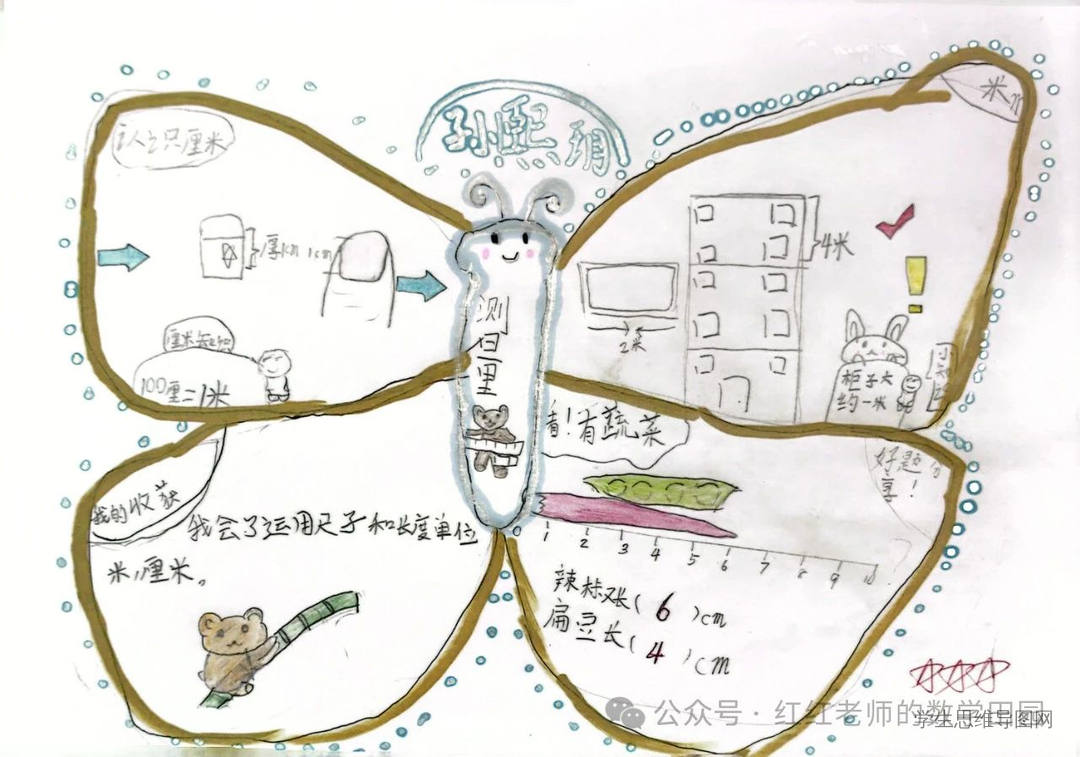 孙熙玥
认识厘米
厚1cm
1cm
厘米知识
100厘=1米
测量
米
4米
2米
柜子大
约一米
看!有蔬菜
好题分
享!
1 2 3 4 5 6 7 8 9 10
辣椒长(6)cm
扁豆长(4)cm
我的收获
我会了运用尺子和长度单位
米,厘米。
公众号·红红老师的数学田园
学生思维导图网